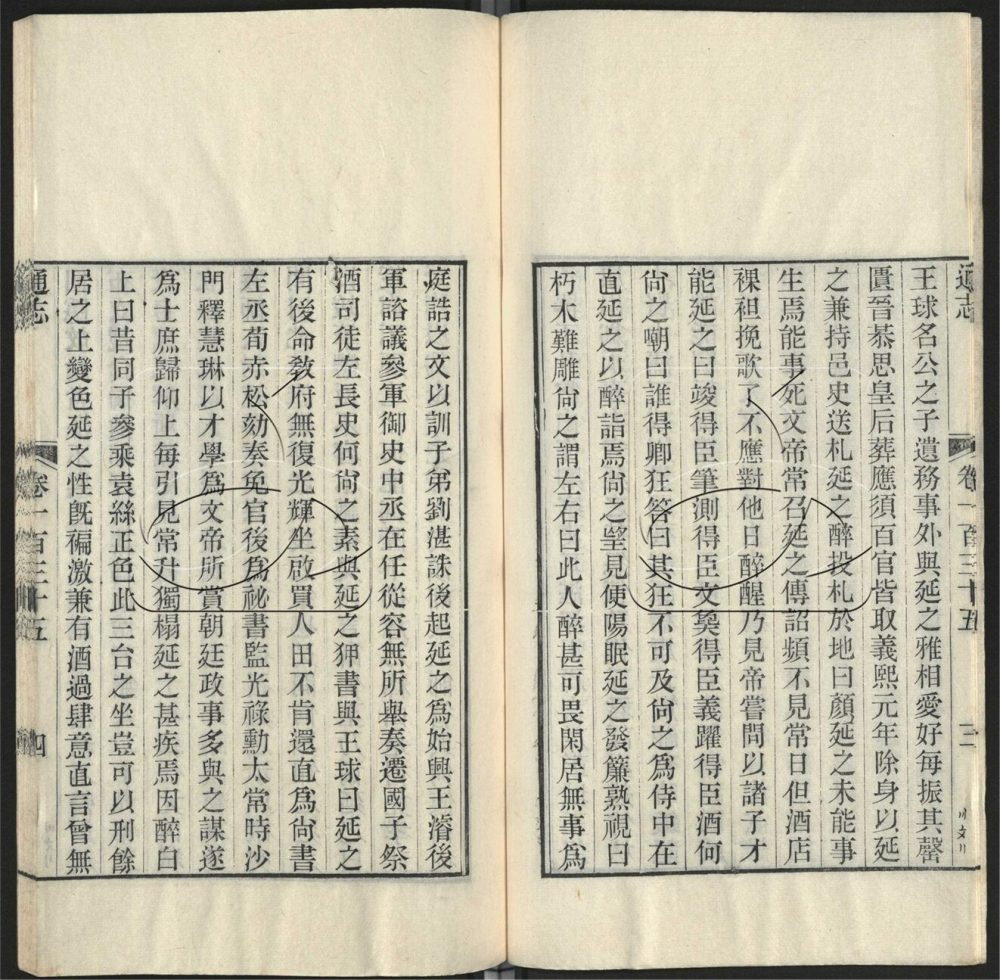 通志
卷一百三十五
王球名公之子遺務事外與延之雅相愛好每振其罄
匱晉恭思皇后葬應須百官皆取義熙元年除身以延
之兼持邑史送札延之醉投札於地曰顏延之未能事
生焉能事死文帝常召延之傳詔頻不見常日但酒店
裸袒挽歌了不應對他日醉醒乃見帝嘗問以諸子才
能延之曰竣得臣筆測得臣文㚟得臣義躍得臣酒何
尙之嘲曰誰得卿狂答曰其狂不可及尙之爲侍中在
直延之以醉詣焉尙之望見便陽眠延之發簾熟視曰
朽木難雕尙之謂左右曰此人醉甚可畏閑居無事爲
庭誥之文以訓子弟劉湛誅後起延之爲始興王濬後
軍諮議參軍御史中丞在任從容無所舉奏遷國子祭
酒司徒左長史何尙之素與延之狎書與王球曰延之
有後命敎府無復光輝坐啟買人田不肯還直爲尙書
左丞荀赤松劾奏免官後爲祕書監光祿勳太常時沙
門釋慧琳以才學爲文帝所賞朝廷政事多與之謀遂
爲士庶歸仰上每引見常升獨榻延之甚疾焉因醉白
上曰昔同子參乘袁絲正色此三台之坐豈可以刑餘
居之上變色延之性旣褊激兼有酒過肆意直言曾無
通志
卷一百三十五
四